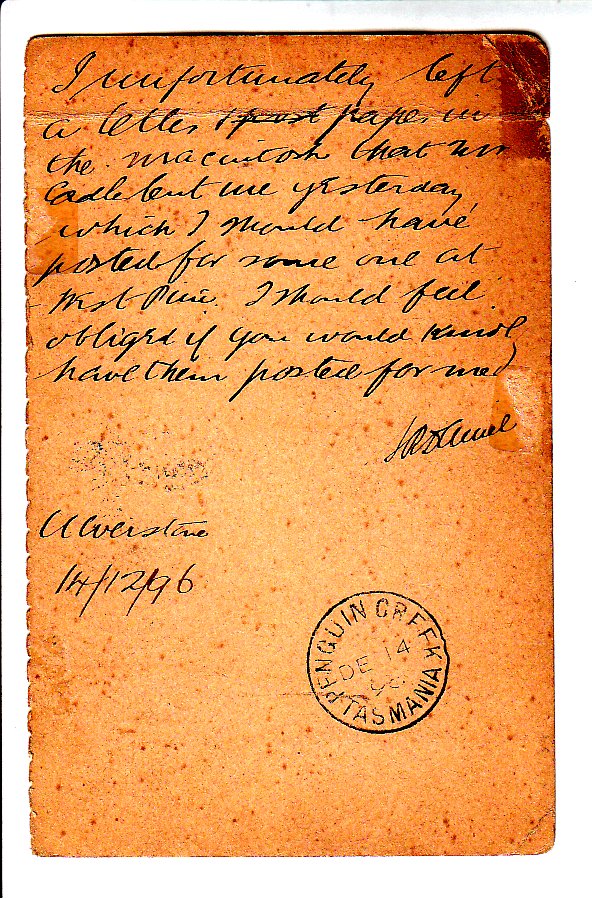 I unfortunately left
a letter & post paper in
the macintosh that Mr
lent me yesterday
which I should have
posted for some one at
West Pine. I should feel
obliged if you would kindly
have them posted for me
Ulverstone
14/12/96
PENGUIN CREEK
DE 14
96
TASMANIA